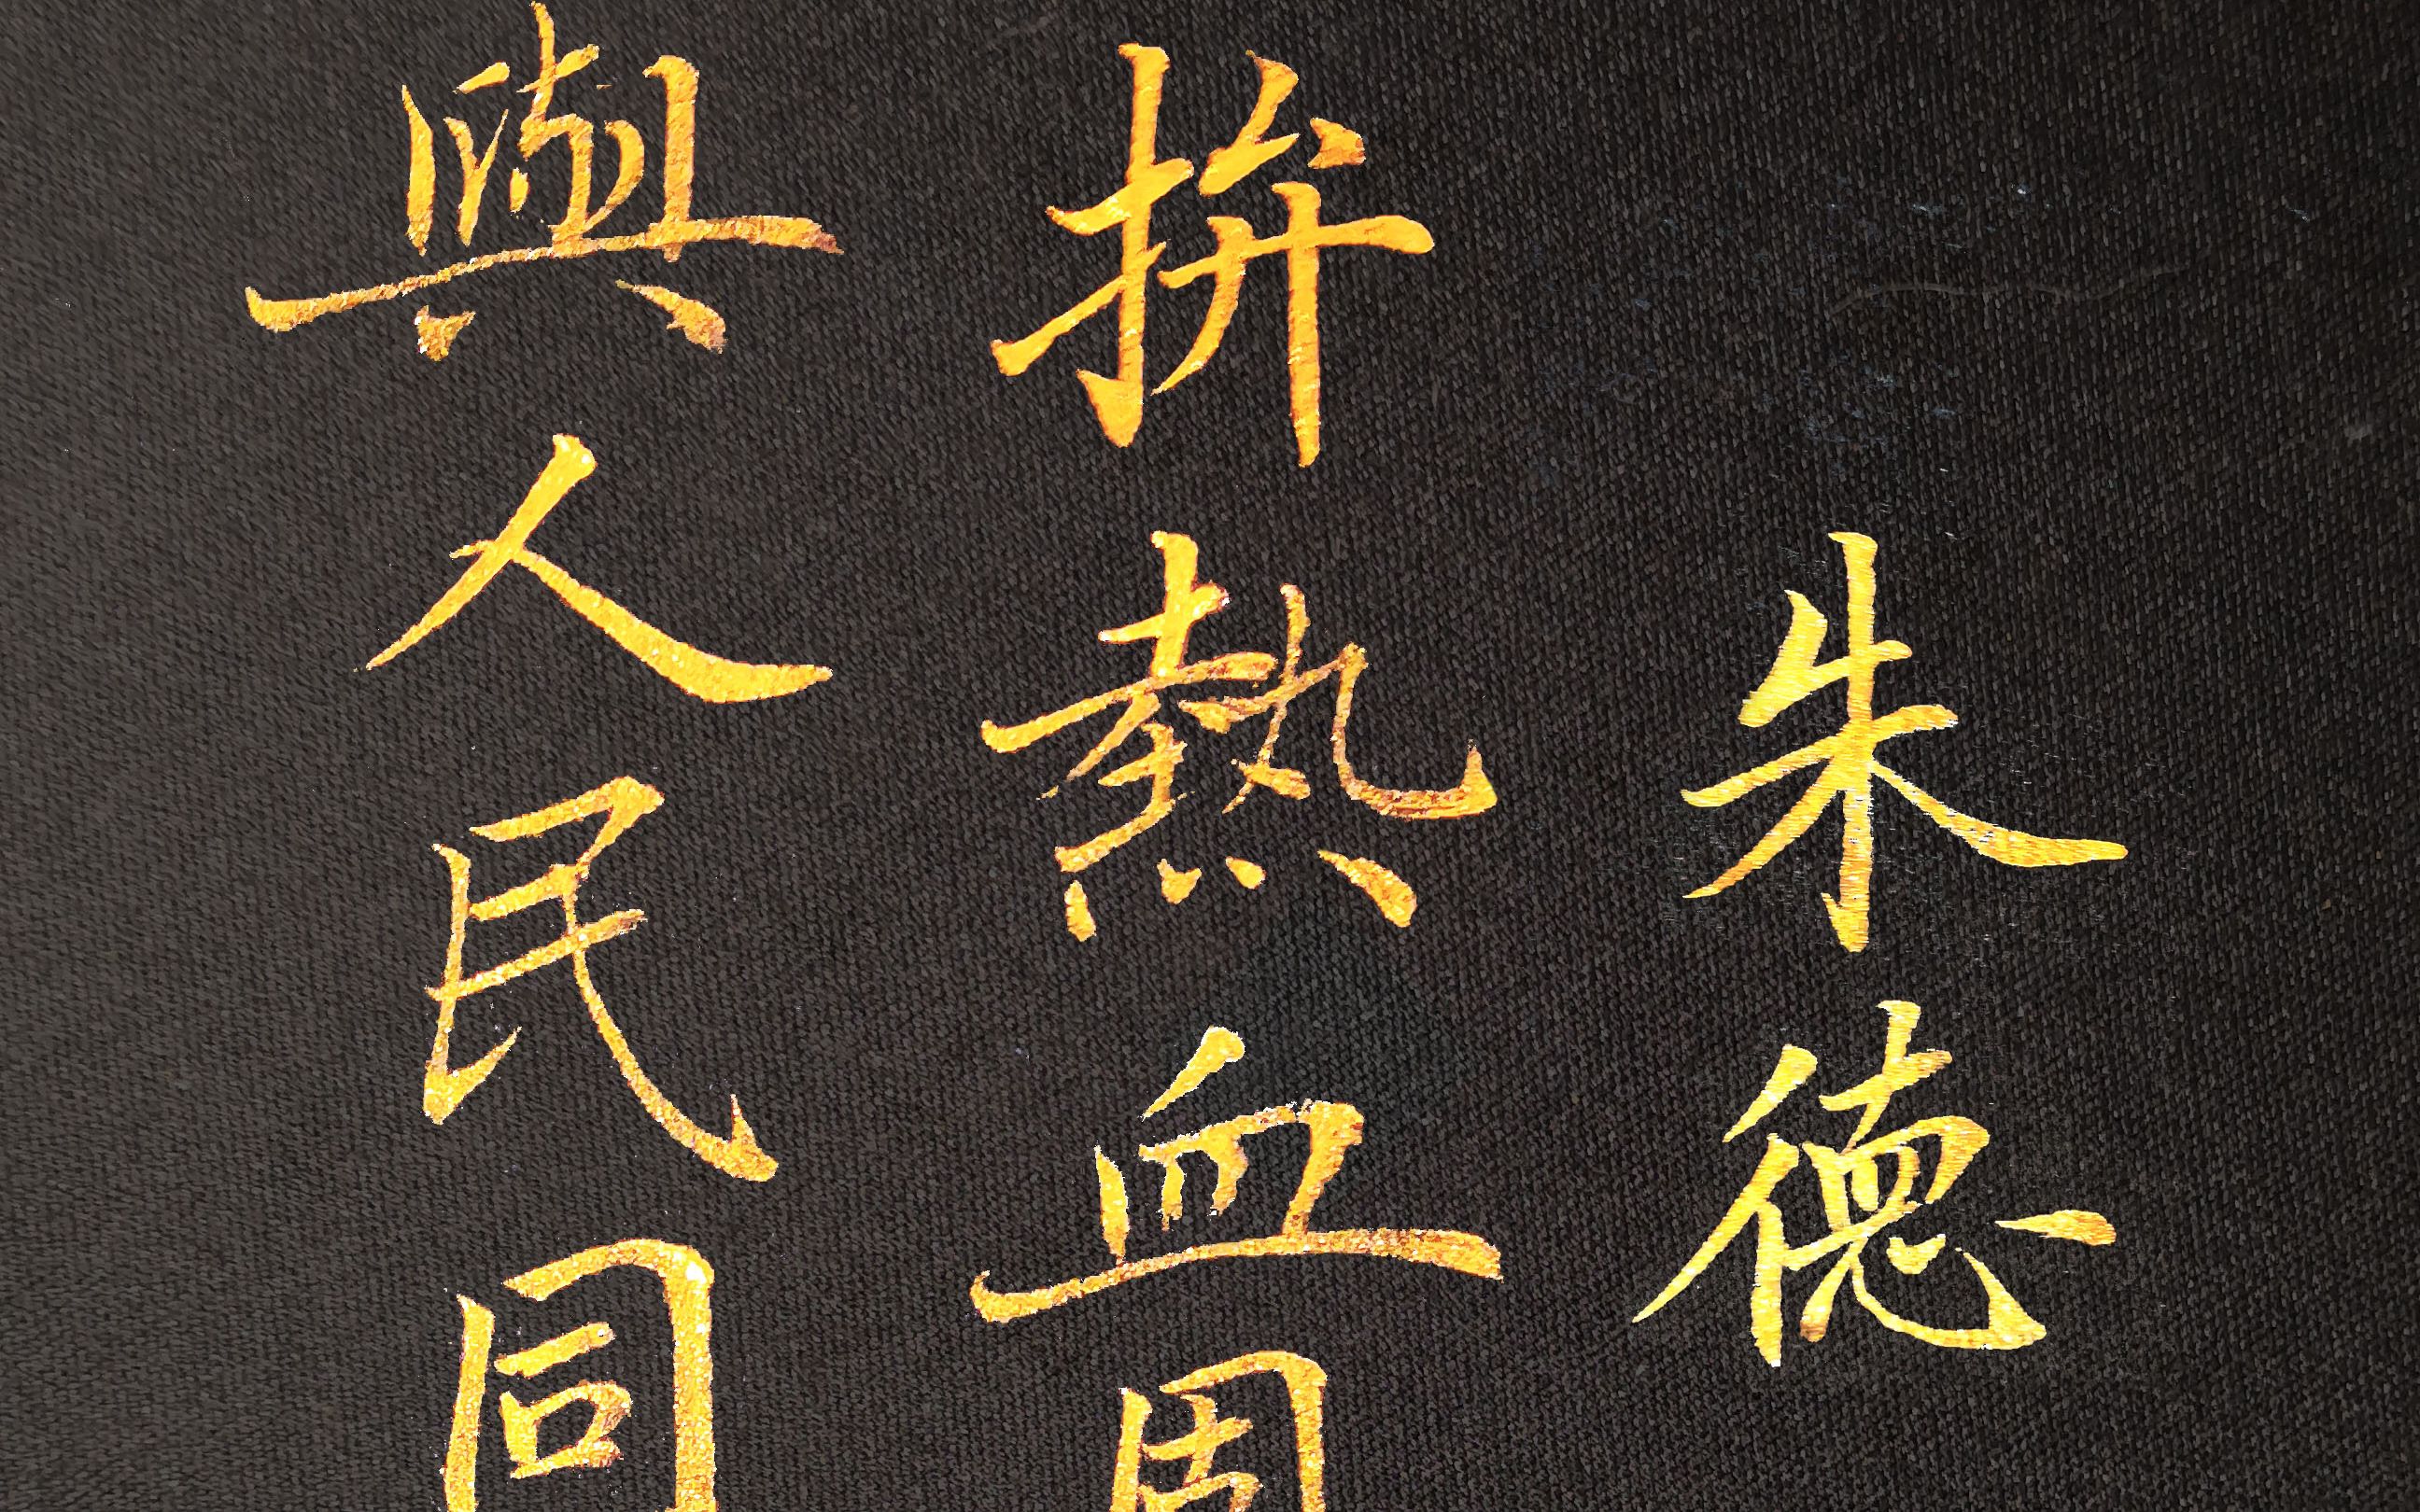 朱德
拚熱血周
與人民同